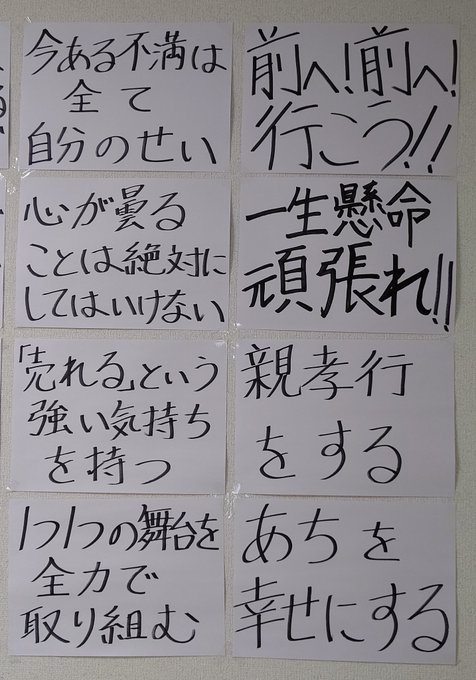 今ある不満は
全て
自分のせい
前へ!前へ!
行こう!!
心が曇る
ことは絶対に
してはいけない
一生懸命
頑張れ!!
「売れる」という
強い気持ち
を持つ
親孝行
をする
1つ1つの舞台を
全力で
取り組む
あちを
幸せにする